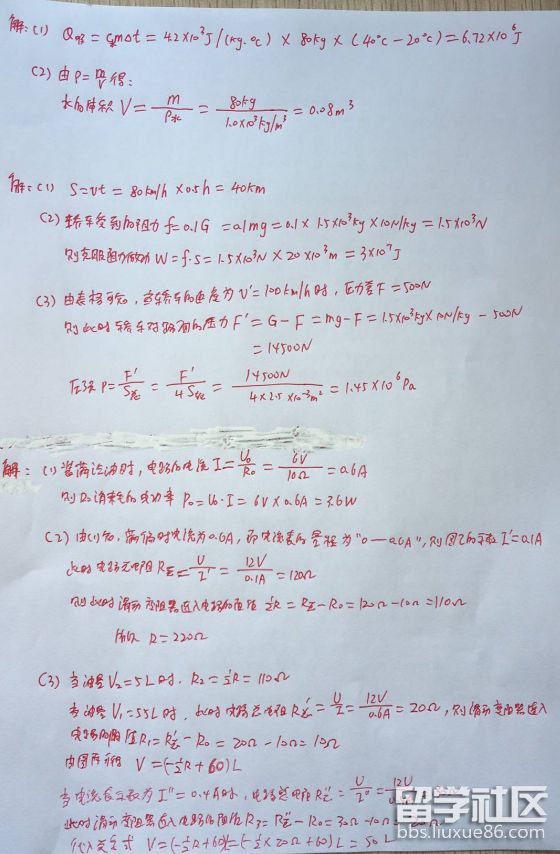 解：(1) Q吸 = cmΔt = 4.2×10³J/(kg·℃) × 80kg × (40℃-20℃) = 6.72×10⁶J
(2) 由ρ=m/V得：
水的体积 V = m/ρ水 = 80kg/1.0×10³kg/m³ = 0.08m³
解：(1) S=vt = 80km/h × 0.5h = 40km
(2) 轿车受到的阻力 f=0.1G = 0.1mg = 0.1×1.5×10³kg×10N/kg = 1.5×10³N
则克服阻力做功 W=f·s = 1.5×10³N × 20×10³m = 3×10⁷J
(3) 由表格可知，当轿车的速度为 v'=100km/h时，压力差F=500N
则此时轿车对路面的压力 F'=G-F=mg-F=1.5×10³kg×10N/kg - 500N
= 14500N
压强 P= F'/S总 = F'/4S = 14500N/4×2.5×10⁻³m² = 1.45×10⁶Pa
解：(1) 当满注油时，电路的电流 I= U₀/R₀ = 6V/10Ω = 0.6A
则R₀消耗的电功率 P₀=U₀·I = 6V×0.6A = 3.6W
(2) 由(1)知，满偏时电流为0.6A，而电流表的量程为"0—0.6A"，则图乙的示数 I'=0.1A
此时电路总电阻 R总= U/I' = 12V/0.1A = 120Ω
则此时滑动变阻器连入电路的阻值 ½R = R总-R₀ = 120Ω-10Ω = 110Ω
所以 R=220Ω
(3) 当油量V₂=5L时，R₂=½R=110Ω
当油量V₁=55L时，此时电路总电阻 R总'= U/I = 12V/0.6A = 20Ω，则滑动变阻器连入
电路的阻值R₁=R总'-R₀ = 20Ω-10Ω=10Ω
由图丙得 V=(-½R+60)L
当电流表示数为 I''=0.4A时，电路总电阻 R总''= U/I'' = 12V
此时滑动变阻器连入电路的阻值R₃=R总''-R₀=30Ω-10Ω
代入关系式 V=(-½R+60)L=(-½×20Ω+60)L=50L
留学社区
bbs.liuxue86.com